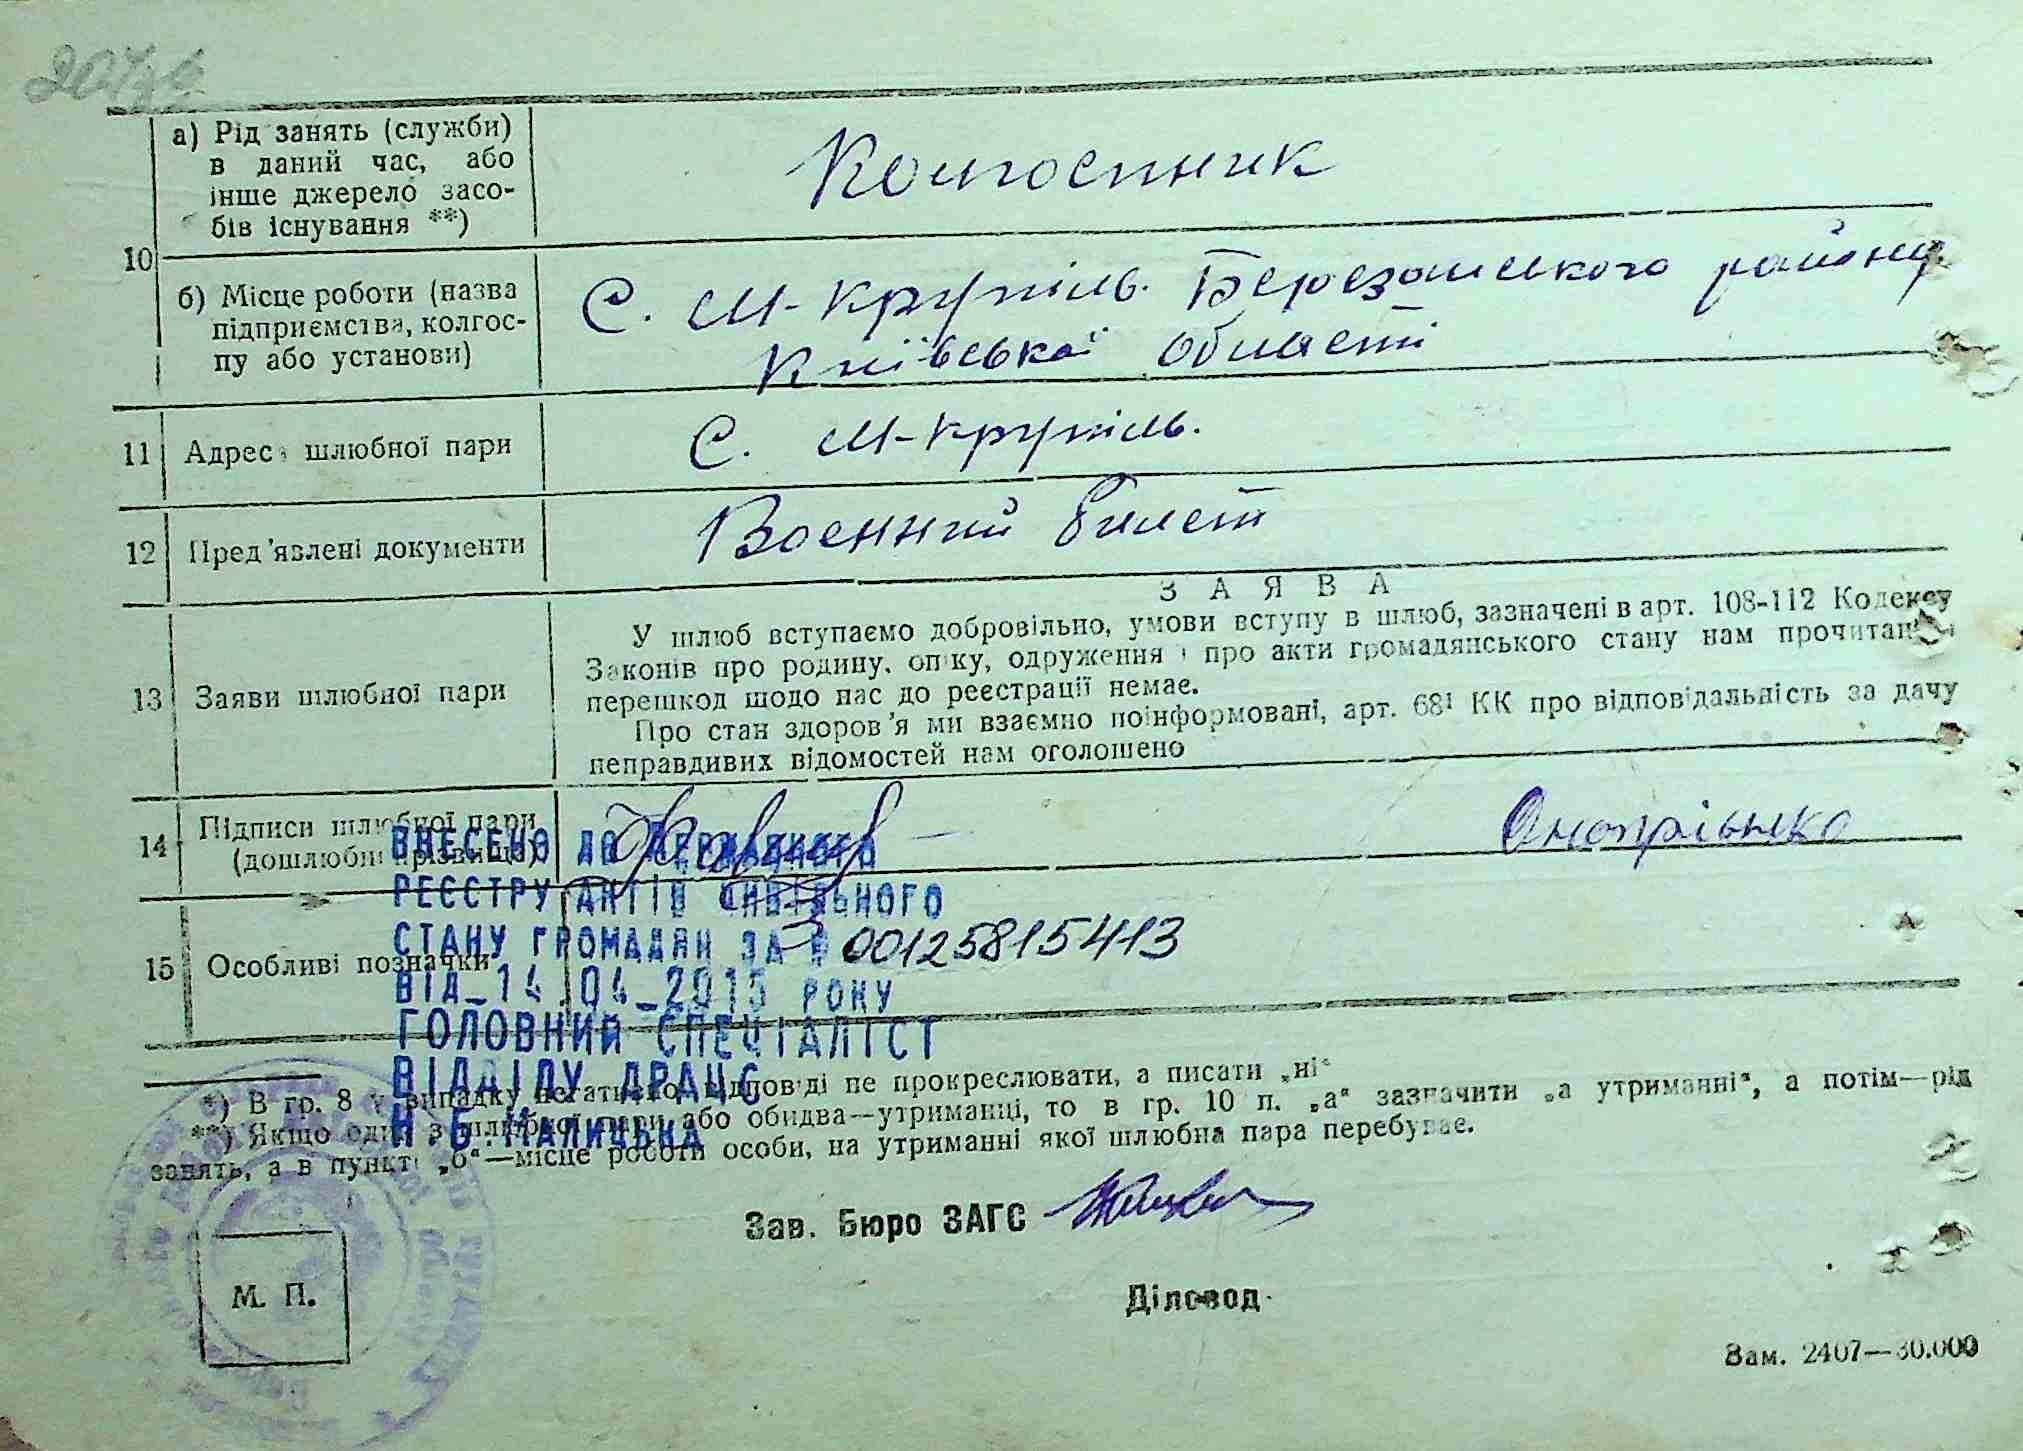 а) Рід занять (служби)
в даний час, або
інше джерело засо-
бів існування **)
Колгоспник
10
б) Місце роботи (назва
підприємства, колгос-
пу або установи)
С. М-Крупіль. Березанського району
Київської області
11 Адреса шлюбної пари
С. М-Крупіль.
12 Пред'явлені документи
Воєнний билет
ЗАЯВА
13 Заяви шлюбної пари
У шлюб вступаємо добровільно, умови вступу в шлюб, зазначені в арт. 108-112 Кодексу
Законів про родину, опіку, одруження і про акти громадянського стану нам прочитані і
перешкод щодо нас до реєстрації немає.
Про стан здоров'я ми взаємно поінформовані, арт. 68¹ КК про відповідальність за дачу
неправдивих відомостей нам оголошено
14 Підписи шлюбної пари
(дошлюбні прізвища)
Онопрієнко
ВНЕСЕНО ДО ДЕРЖАВНОГО
РЕЄСТРУ АКТІВ ЦИВІЛЬНОГО
СТАНУ ГРОМАДЯН ЗА № 00125815413
15 Особливі позначки
ВІД_14.04_2015 РОКУ
ГОЛОВНИЙ СПЕЦІАЛІСТ
ВІДДІЛУ ДРАЦС
*) В гр. 8 у випадку негативної відповіді не прокреслювати, а писати „ні“
**) Якщо один з шлюбної пари або обидва—утриманці, то в гр. 10 п. „а“ зазначити „а утриманні“, а потім—рід
занять, а в пункті „б“—місце роботи особи, на утриманні якої шлюбна пара перебуває.
Зав. Бюро ЗАГС
М. П.
Діловод
Зам. 2407—30.000